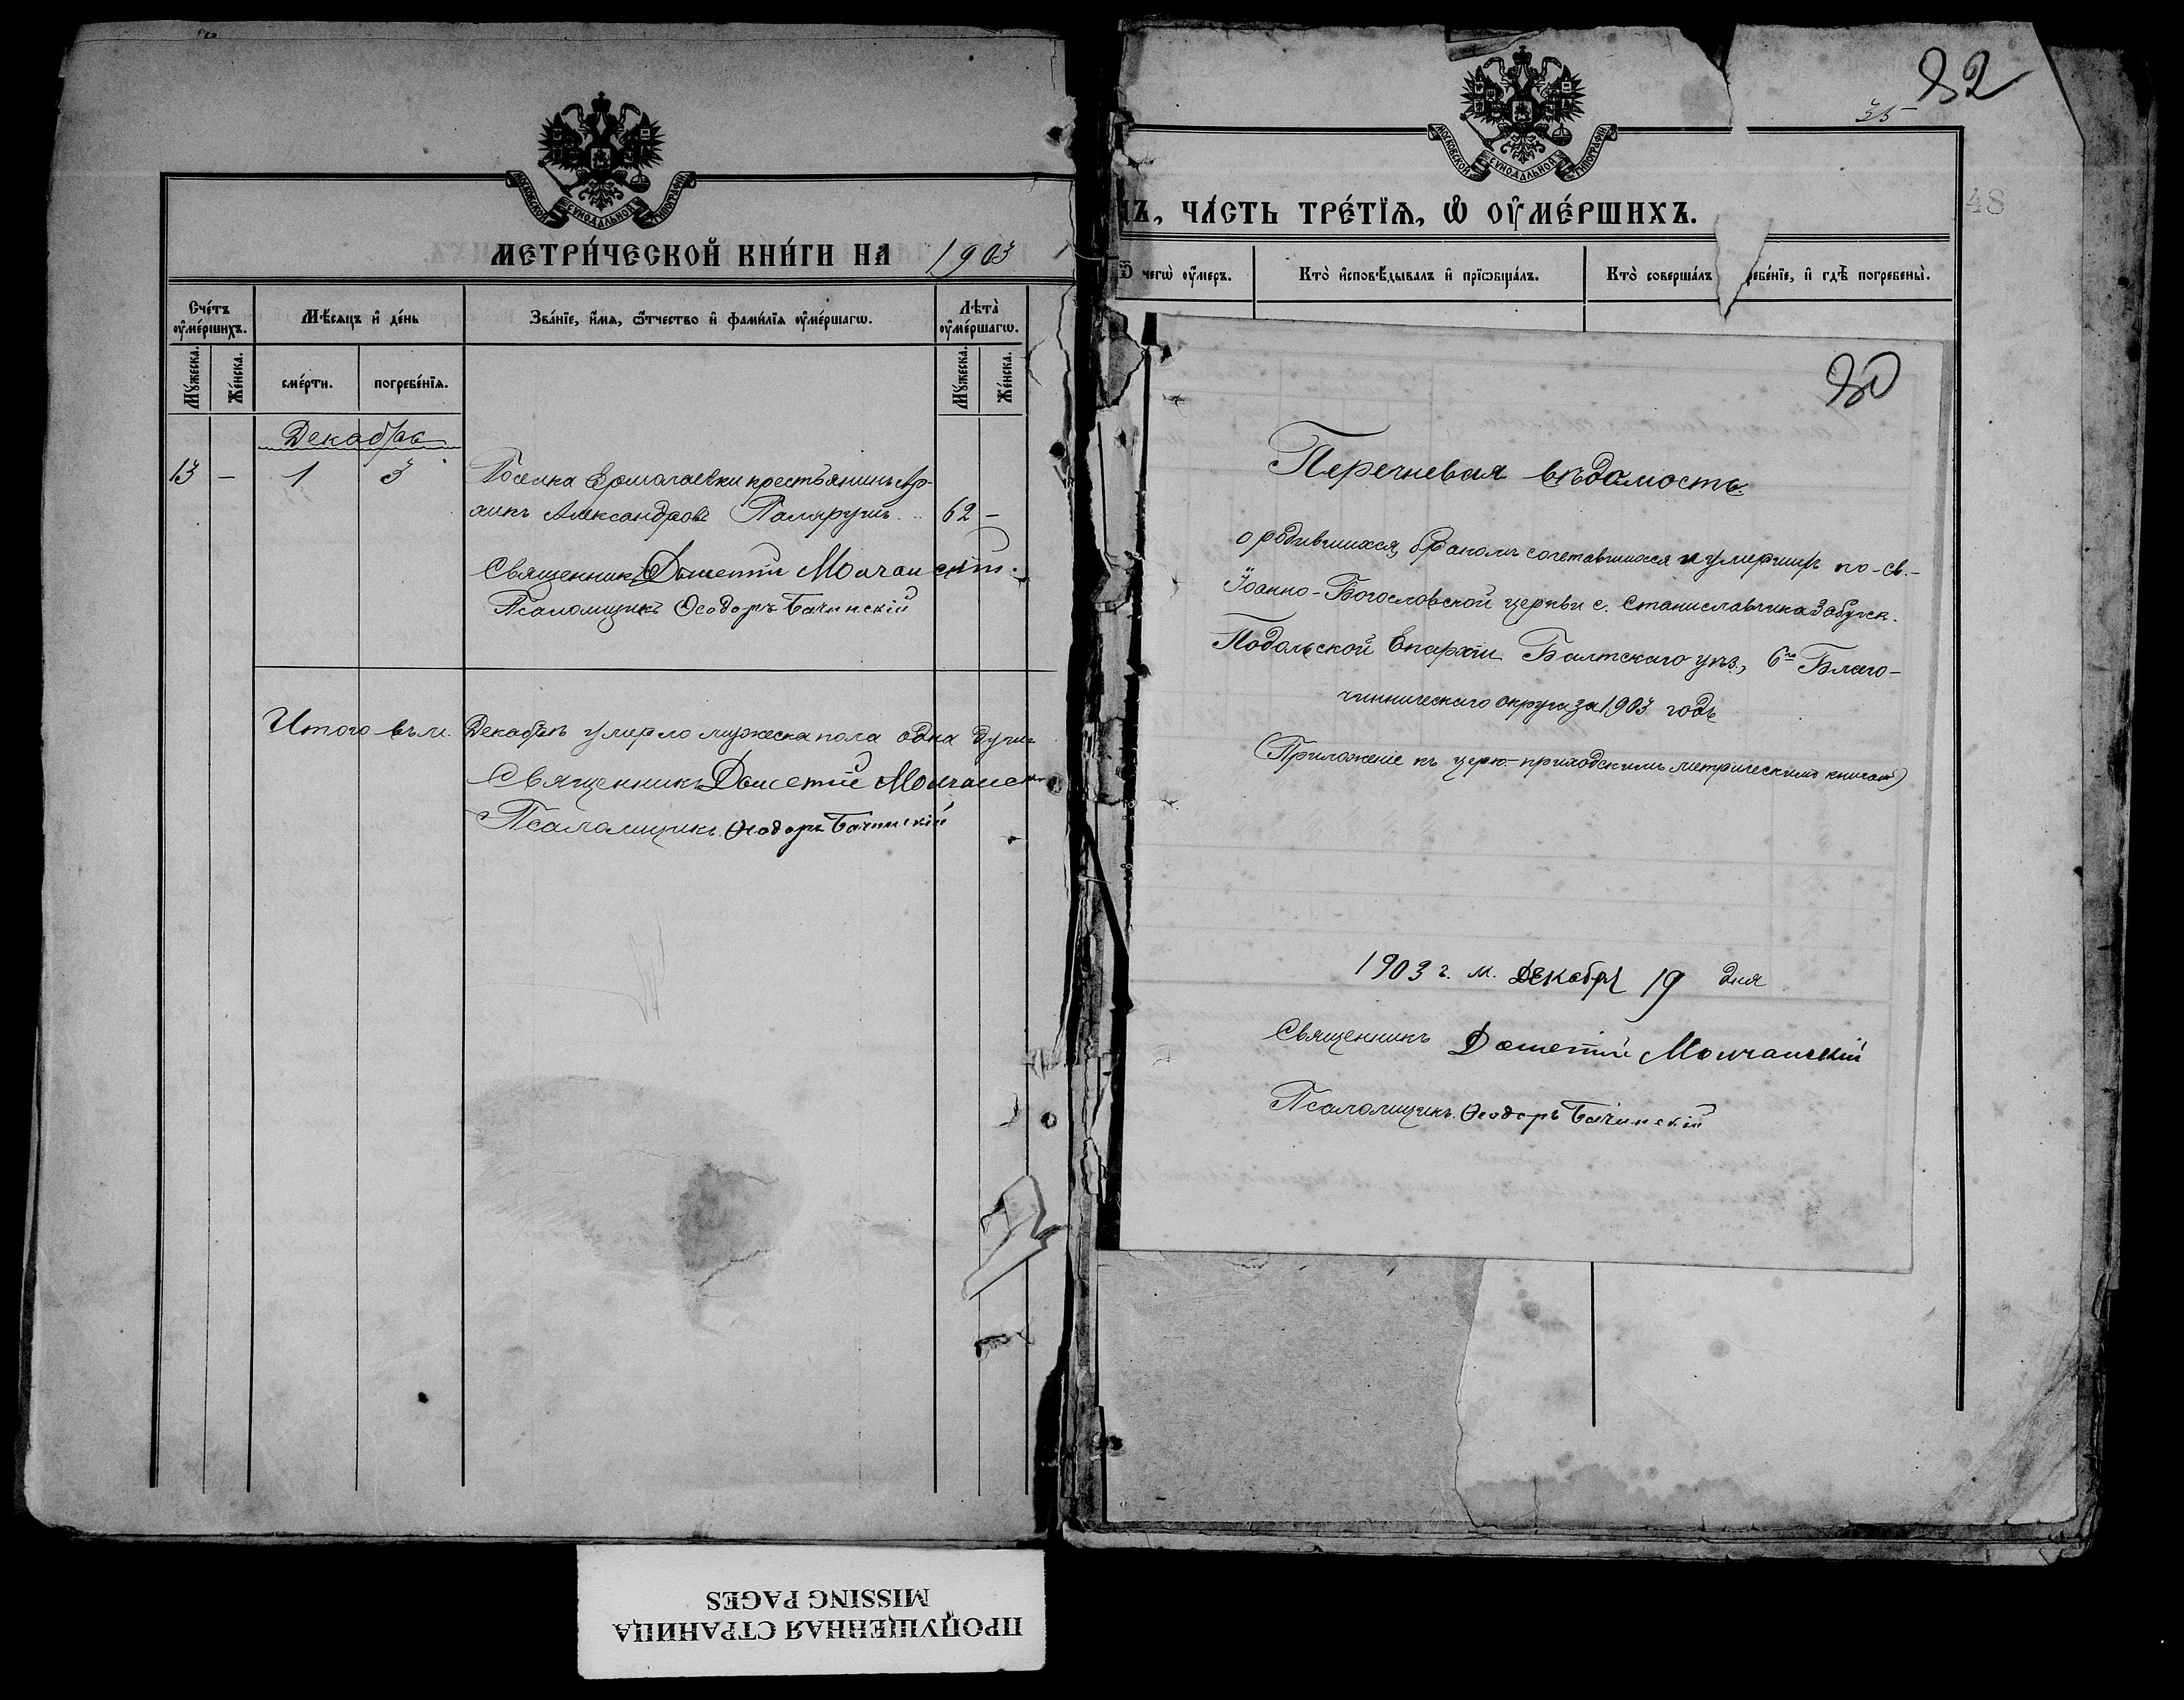 МОСКОВСКОЙ СУНОДАЛЬНОЙ ТИПОГРАФІИ
МЕТРИ́ЧЕСКОЙ КНИ́ГИ НА 1903
Сче́тъ оу҆ме́ршихъ.
Мѣ́сяцъ и҆ де́нь
Зва́нїе, и҆́мѧ, ѻ҆́тчество и҆ фами́лїѧ оу҆ме́ршагѡ.
Лѣ́та оу҆ме́ршагѡ.
Мꙋ́жеска.
Же́нска.
сме́рти.
погребе́нїѧ.
Мꙋ́жеска.
Же́нска.
Декабрь
13 – 1 3 Поселка Ермолаевки крестьянинъ
Александровъ 62 –
Священникъ Дометій Молчанскій.
Псаломщикъ Ѳеодоръ Бачинскій
Итого въ м. Декабрѣ умерло мужеска пола одна душа
Священникъ Дометій Молчанскій
Псаломщикъ Ѳеодоръ Бачинскій
ПРОПУЩЕННАЯ СТРАНИЦА
MISSING PAGES
82
35
48
МОСКОВСКОЙ СУНОДАЛЬНОЙ ТИПОГРАФІИ
Ъ, ЧА́СТЬ ТРЕ́ТЇѦ, Ѡ҆ ОУ҆МЕ́РШИХЪ.
Ѿ чегѡ̀ оу҆́меръ.
Кто̀ и҆сповѣ́дывалъ и҆ прїѡбща́лъ.
Кто̀ соверша́лъ ребе́нїе, и҆ гдѣ̀ погребены̀.
80
Перечневая вѣдомость
о родившихся, бракомъ сочетавшихся и умершихъ по св.-
Іоанно-Богословской церкви с. Станиславчика Забужск.
Подольской Епархіи Балтскаго уѣз., 6го Благо-
чинническаго округа за 1903 годъ
(Приложеніе къ церк-приходскимъ метрическимъ книгамъ)
1903 г. м. Декабря 19 дня
Священникъ Дометій Молчанскій
Псаломщикъ Ѳеодоръ Бачинскій